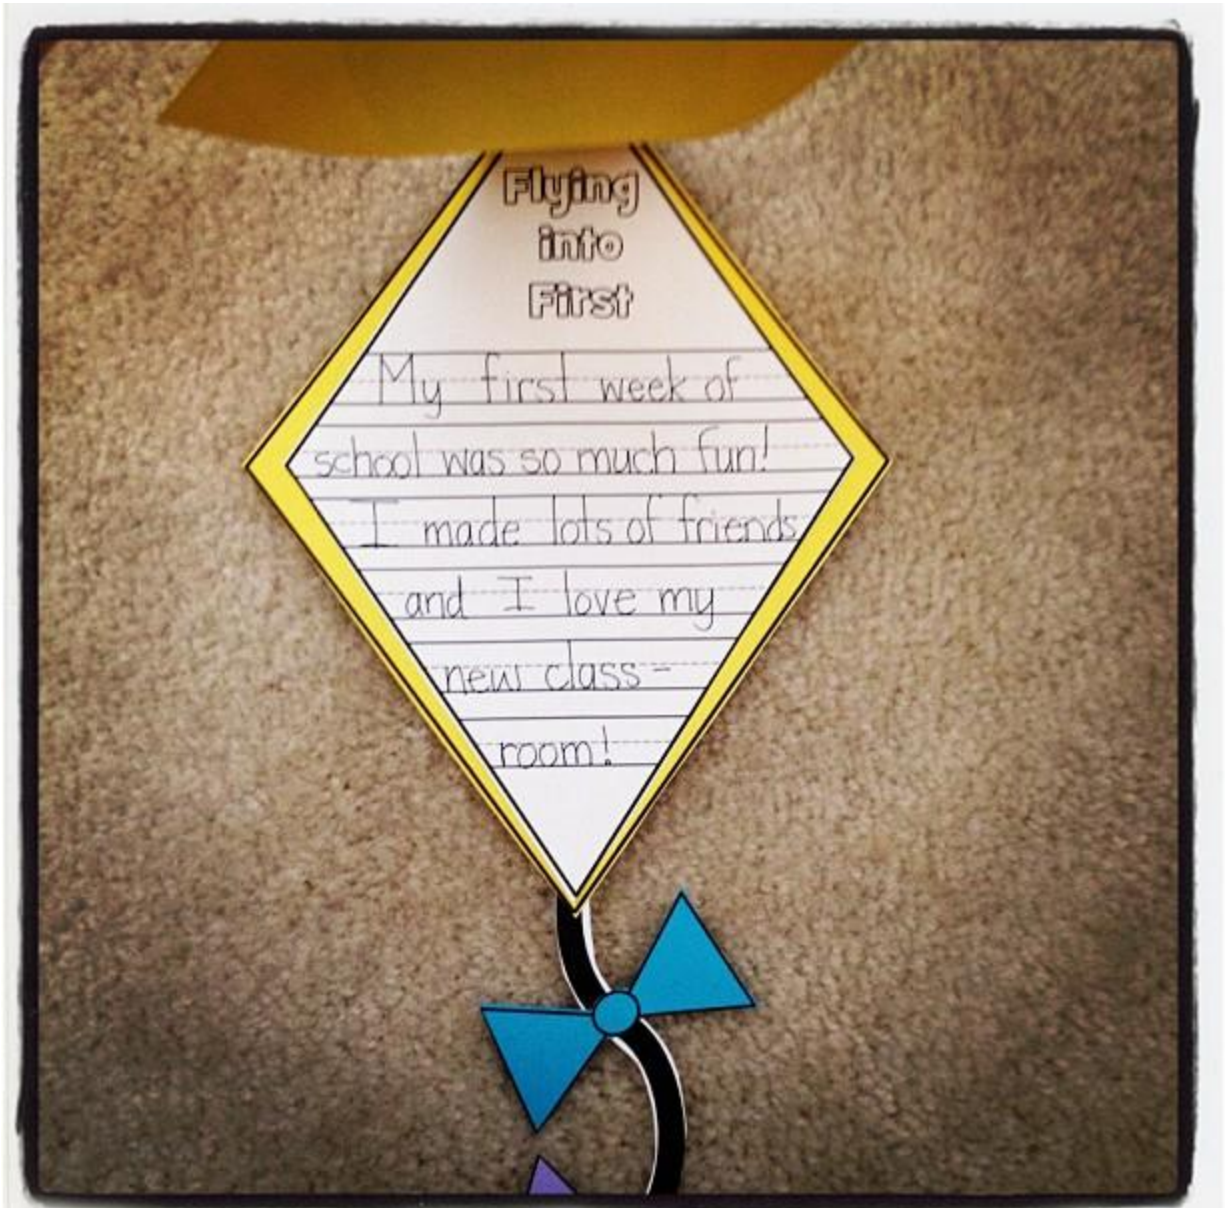 Flying
into
First
My first week of
school was so much fun!
I made lots of friends
and I love my
new class-
room!